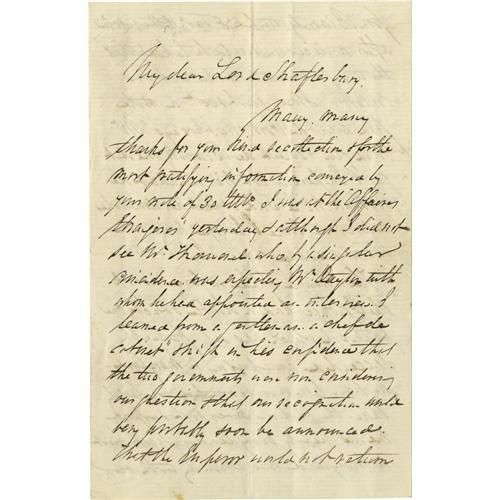 My dear Lord Shaftesbury.
Many, many
thanks for your kind recollection & for the
most gratifying information conveyed by
your note of 30 Ulto, I was at the Affaires
Etrangeres yesterday, & although I did not
see Mr. Thouvenel who by a singular
coincidence was expecting Mr Dayton with
whom he had appointed an interview. I
learned from a gentleman a "chef de
cabinet" & high in his confidence that
the two governments were now considering
our question & that our recognition would
very probably soon be announced.
that the Emperor would not return